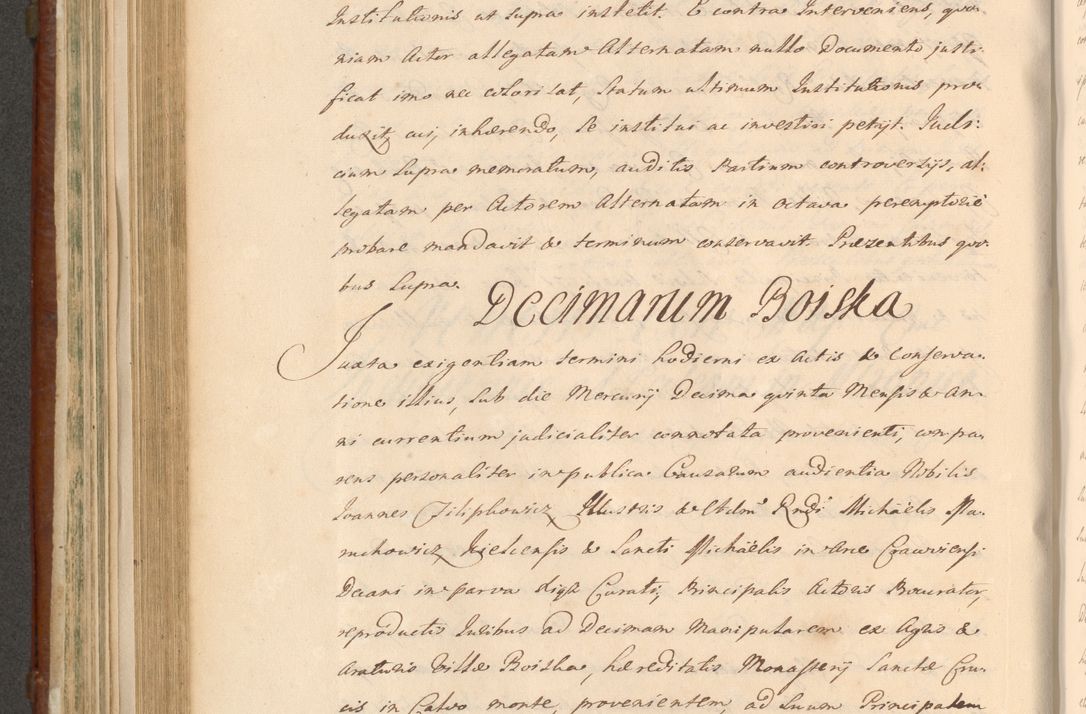 Institutionis ut supra institit. E contra Interveniens, quo-
niam Actor allegatam Alternatam nullo Documento justi-
ficat imo nec colorisat, statum ultimum Institutionis pro-
duxit, cui, inhærendo, se institui ac investiri petijt. Judi:
cium supra memoratum, auditis Partium controversijs, al:
legatam per Actorem Alternatam in octava peremptorie
probare mandavit & terminum conservavit. Præzentibus qvi-
bus supra.
Decimarum Boiska
Juxta exigentiam termini hodierni ex Actis & conserva-
tione illius, sub die Mercurij Decima qvinta Mensis & An-
ni currentium judicialiter connotata provenienti, compa-
rens personaliter in publica Causarum audientia Nobilis
Joannes Filiphowicz Illustris & Adm Rndi Michäelis Ma-
Kielcensis & Sancti Michäelis in Arce Cracoviensi
Decani in parva Curati, Principalis Actoris Procurator,
reproductis Juribus ad Decimam Manipularem ex Agris &
Araturis Villæ Boiska, hæreditatis Monasterij Sanctæ Cru-
cis in Calvo monte, provenientem, ad suum Principalem